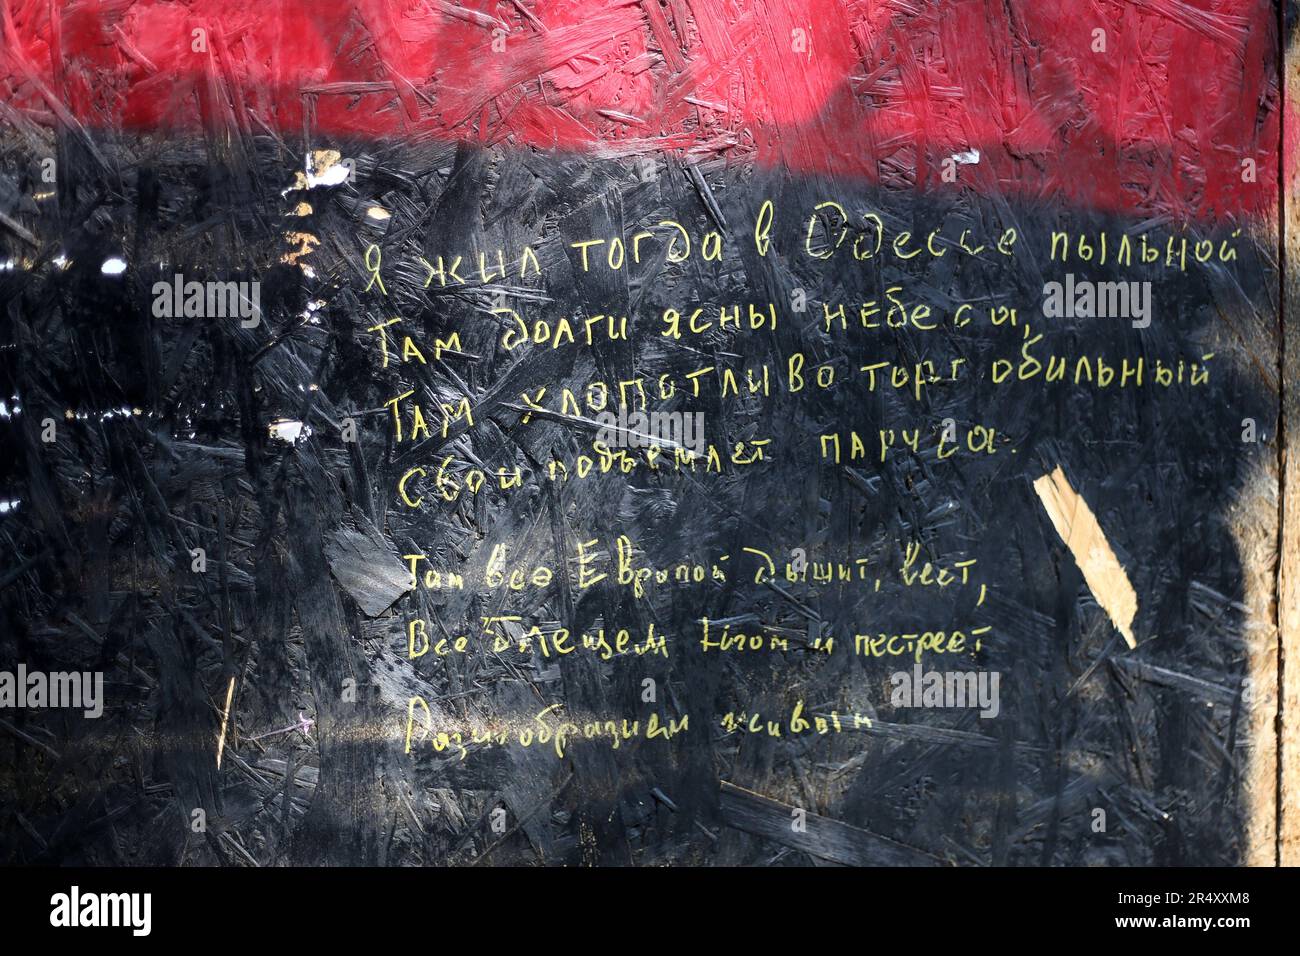 Я жил тогда в Одессе пыльной
Там долги ясны небеса,
Там хлопотливо торг обильный
Свои подъемлет паруса.
Там все Европой дышит, веет,
Все блещет Югом и пестреет
Разнообразием живым
a
alamy
Image ID: 2R4XXM8
www.alamy.com